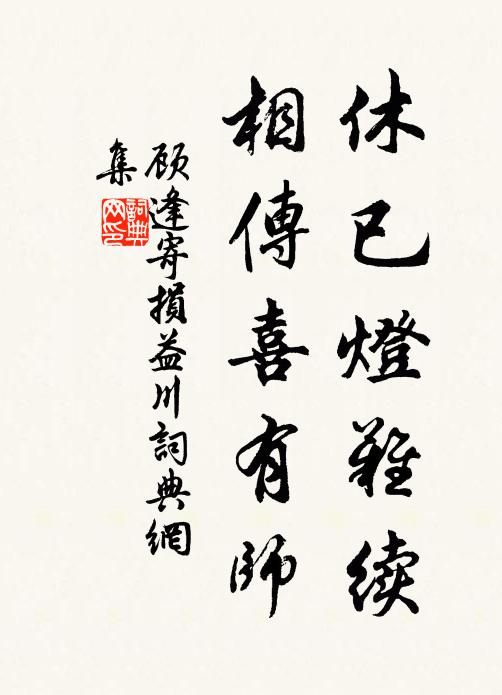 休已燈難續
相傳喜有師
顾逢寄損益川詞典網
集
詞典網印